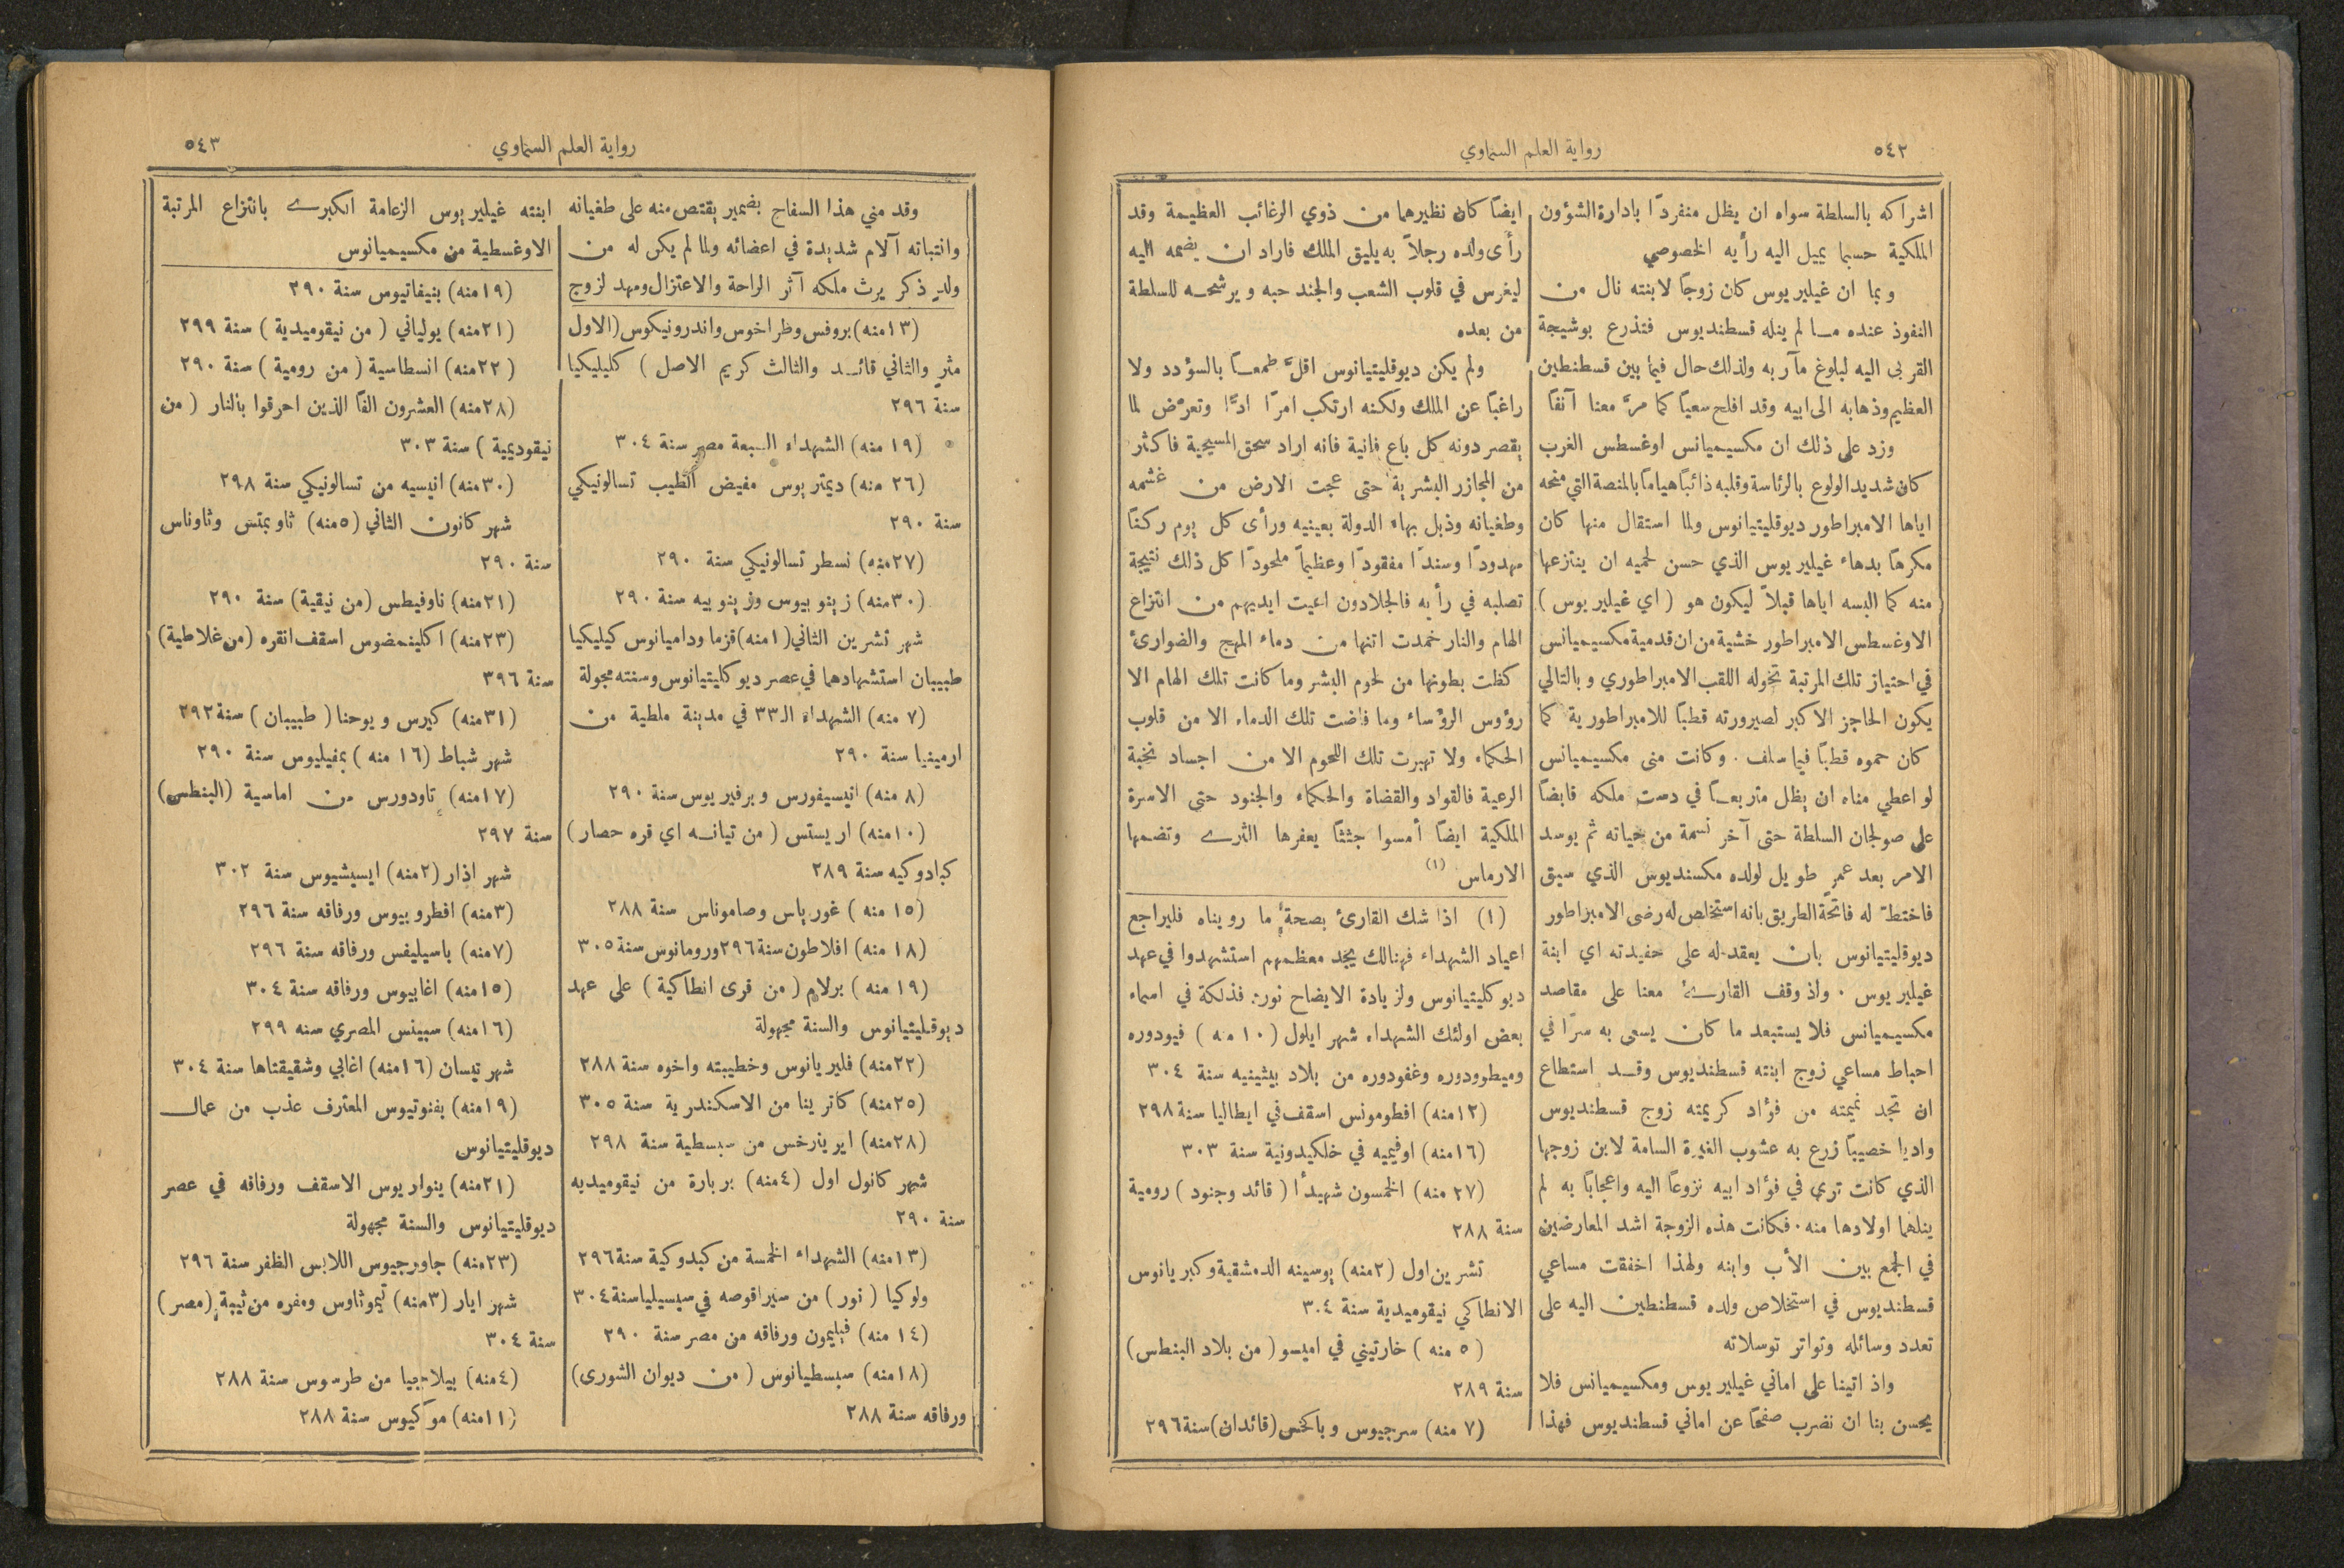 ٥٤٢
رواية العلم السماوي
اشراكه بالسلطة سواه ان يظل منفردًا بادارة الشؤون
الملكية حسبما يميل اليه رأيه الخصوصي
وبما ان غيليريوس كان زوجًا لابنته نال من
النفوذ عنده ما لم ينله قسطنديوس فتذرع بوشيجة
القربى اليه لبلوغ مآربه ولذلك حال فيما بين قسطنطين
العظيم وذهابه الى ابيه وقد افلح سعيًا كما مرَّ معنا آنفًا
وزد على ذلك ان مكسيميانس اوغسطس الغرب
كان شديد الولوع بالرئاسة وقلبه ذائبًا هيامًا بالمنصة التي منحه
اياها الامبراطور ديوقليتيانوس ولما استقال منها كان
مكرهًا بدهاء غيليريوس الذي حسن لحميه ان ينتزعها
منه كما البسه اياها قبلًا ليكون هو ( اي غيليريوس )
الاوغسطس الامبراطور خشية من ان قدمية مكسيميانس
في احتياز تلك المرتبة تخوله اللقب الامبراطوري وبالتالي
يكون الحاجز الاكبر لصيرورته قطبًا للامبراطورية كما
كان حموه قطبًا فيما سلف . وكانت منى مكسيميانس
لو اعطي مناه ان يظل متربعًا في دست ملكه قابضًا
على صولجان السلطة حتى آخر نسمة من حياته ثم يوسد
الامر بعد عمرٍ طويل لولده مكسنديوس الذي سيق
فاختطّ له فاتحة الطريق بانه استخلص له رضى الامبراطور
ديوقليتيانوس بان يعقد له على حفيدته اي ابنة
غيليريوس . واذ وقف القارئ معنا على مقاصد
مكسيميانس فلا يستبعد ما كان يسعى به سرًا في
احباط مساعي زوج ابنته قسطنديوس وقد استطاع
ان تجد نميمته من فؤاد كريمته زوج قسطنديوس
واديا خصيبًا زرع به عشوب الغيرة السامة لابن زوجها
الذي كانت ترى في فؤاد ابيه نزوعًا اليه واعجابًا به لم
ينلهما اولادها منه . فكانت هذه الزوجة اشد المعارضين
في الجمع بين الأب وابنه ولهذا اخفقت مساعي
قسطنديوس في استخلاص ولده قسطنطين اليه على
تعدد وسائله وتواتر توسلاته
واذ اتينا على اماني غيليريوس ومكسيميانس فلا
يحسن بنا ان نضرب صفحًا عن اماني قسطنديوس فهذا
ايضًا كان نظيرهما من ذوي الرغائب العظيمة وقد
رأى ولده رجلًا به يليق الملك فاراد ان يضمه اليه
ليغرس في قلوب الشعب والجند حبه ويرشحه للسلطة
من بعده
ولم يكن ديوقليتيانوس اقلَّ طمعًا بالسؤدد ولا
راغبًا عن الملك ولكنه ارتكب امرًا ادًّا وتعرّض لما
يقصر دونه كل باع فانية فانه اراد سحق المسيحية فاكثر
من المجازر البشرية حتى عجت الارض من غشمه
وطغيانه وذبل بهاء الدولة بعينيه ورأى كل يوم ركنًا
مهدودًا وسندًا مفقودًا وعظيمًا ملحودًا كل ذلك نتيجة
تصلبه في رأيه فالجلادون اعيت ايديهم من انتزاع
الهام والنار خمدت اتنها من دماء المهج والضوارئ
كظت بطونها من لحوم البشر وما كانت تلك الهام الا
رؤوس الرؤساء وما فاضت تلك الدماء الا من قلوب
الحكماء ولا تهبرت تلك اللحوم الا من اجساد نخبة
الرعية فالقواد والقضاة والحكماء والجنود حتى الاسرة
الملكية ايضًا أمسوا جثثًا يعفرها الثرى وتضمها
الارماس (١)
(١) اذا شك القارئ بصحة ما رويناه فليراجع
اعياد الشهداء فهنالك يجد معظمهم استشهدوا في عهد
ديوكليتيانوس ولزيادة الايضاح نورد فذلكة في اسماء
بعض اولئك الشهداء شهر ايلول (١٠ منه) فيودوره
وميطرودوره وغفودوره من بلاد بيثينيه سنة ٣٠٤
(١٢منه) افطومونس اسقف في ايطاليا سنة ٢٩٨
(١٦منه) اوفيميه في خلكيدونية سنة ٣٠٣
(٢٧ منه) الخمسون شهيدًا ( قائد وجنود ) رومية
سنة ٢٨٨
تشرين اول (٢منه) يوسينه الدمشقية وكبريانوس
الانطاكي نيقوميدية سنة ٣٠٤
(٥ منه ) خارتيني في اميسو ( من بلاد البنطس)
سنة ٢٨٩
(٧ منه) سرجيوس وباكخس (قائدان) سنة ٢٩٦
رواية العلم السماوي
٥٤٣
وقد مني هذا السفاح بضمير يقتص منه على طغيانه
وانتباته آلام شديدة في اعضائه ولما لم يكن له من
ولدٍ ذكر يرث ملكه آثر الراحة والاعتزال ومهد لزوج
(١٣منه) بروفس وطراخوس واندرونيكوس (الاول
مثرٍ والثاني قائد والثالث كريم الاصل ) كليليكيا
سنة ٢٩٦
(١٩ منه) الشهداء السبعة مصر سنة ٣٠٤
(٢٦ منه) ديمتريوس مفيض الطيب تسالونيكي
سنة ٢٩٠
(٢٧منه) نسطر تسالونيكي سنة ٢٩٠
(٣٠منه) زينوبيوس وزينوبيه سنة ٢٩٠
شهر تشرين الثاني (١منه) قزما وداميانوس كيليكيا
طبيبان استشهادهما في عصر ديوكليتيانوس وسنته مجهولة
(٧ منه) الشهداء الـ٣٣ في مدينة ملطية من
ارمينيا سنة ٢٩٠
(٨ منه) انيسيفورس وبرفيريوس سنة ٢٩٠
(١٠منه) اريستس ( من تيانه اي قره حصار )
كبادوكيه سنة ٢٨٩
(١٥ منه ) غورياس وصاموناس سنة ٢٨٨
(١٨ منه) افلاطون سنة ٢٩٦ ورومانوس سنة ٣٠٥
(١٩ منه ) برلام ( من قرى انطاكية ) على عهد
ديوقليتيانوس والسنة مجهولة
(٢٢منه) فليريانوس وخطيبته واخوه سنة ٢٨٨
(٢٥منه) كاترينا من الاسكندرية سنة ٣٠٥
(٢٨منه) ايرينرخس من سبسطية سنة ٢٩٨
شهر كانول اول (٤منه) بربارة من نيقوميديه
سنة ٢٩٠
(١٣منه) الشهداء الخمسة من كبدوكية سنة ٢٩٦
ولوكيا ( نور ) من سيراقوصه في سيسيليا سنة ٣٠٤
(١٤ منه) فيليمون ورفاقه من مصر سنة ٢٩٠
(١٨منه) سبسطيانوس ( من ديوان الشورى)
ورفاقه سنة ٢٨٨
ابنته غيليريوس الزعامة الكبرى بانتزاع المرتبة
الاوغسطية من مكسيميانوس
(١٩منه) بنيفاتيوس سنة ٢٩٠
(٢١منه) يولياني ( من نيقوميدية ) سنة ٢٩٩
(٢٢منه) انسطاسية ( من رومية ) سنة ٢٩٠
(٢٨منه) العشرون الفًا الذين احرقوا بالنار ( من
نيقوديمية ) سنة ٣٠٣
(٣٠منه) انيسيه من تسالونيكي سنة ٢٩٨
شهر كانون الثاني (٥منه) ثاوبمتس وثاوناس
سنة ٢٩٠
(٢١منه) ناوفيطس (من نيقية) سنة ٢٩٠
(٢٣منه) اكلينمضوس اسقف انقره (من غلاطية)
سنة ٣٩٦
(٣١منه) كيرس ويوحنا ( طبيبان ) سنة ٢٩٢
شهر شباط (١٦ منه ) بمفيليوس سنة ٢٩٠
(١٧منه) تاودورس من اماسية (البنطس)
سنة ٢٩٧
شهر اذار (٢منه) ايسيشيوس سنة ٣٠٢
(٣منه) افطروبيوس ورفاقه سنة ٢٩٦
(٧منه) باسيليفس ورفاقه سنة ٢٩٦
(١٥منه) اغابيوس ورفاقه سنة ٣٠٤
(١٦منه) سبينس المصري سنه ٢٩٩
شهر نيسان (١٦منه) اغابي وشقيقتاها سنة ٣٠٤
(١٩منه) بفنوتيوس المعترف عذب من عمال
ديوقليتيانوس
(٢١منه) ينواريوس الاسقف ورفاقه في عصر
ديوقليتيانوس والسنة مجهولة
(٢٣منه) جاورجيوس اللابس الظفر سنة ٢٩٦
شهر ايار (٣منه) تيموثاوس ومفره من ثيبة (مصر)
سنة ٣٠٤
(٤منه) بيلاجيا من طرسوس سنة ٢٨٨
(١١منه) موكيوس سنة ٢٨٨